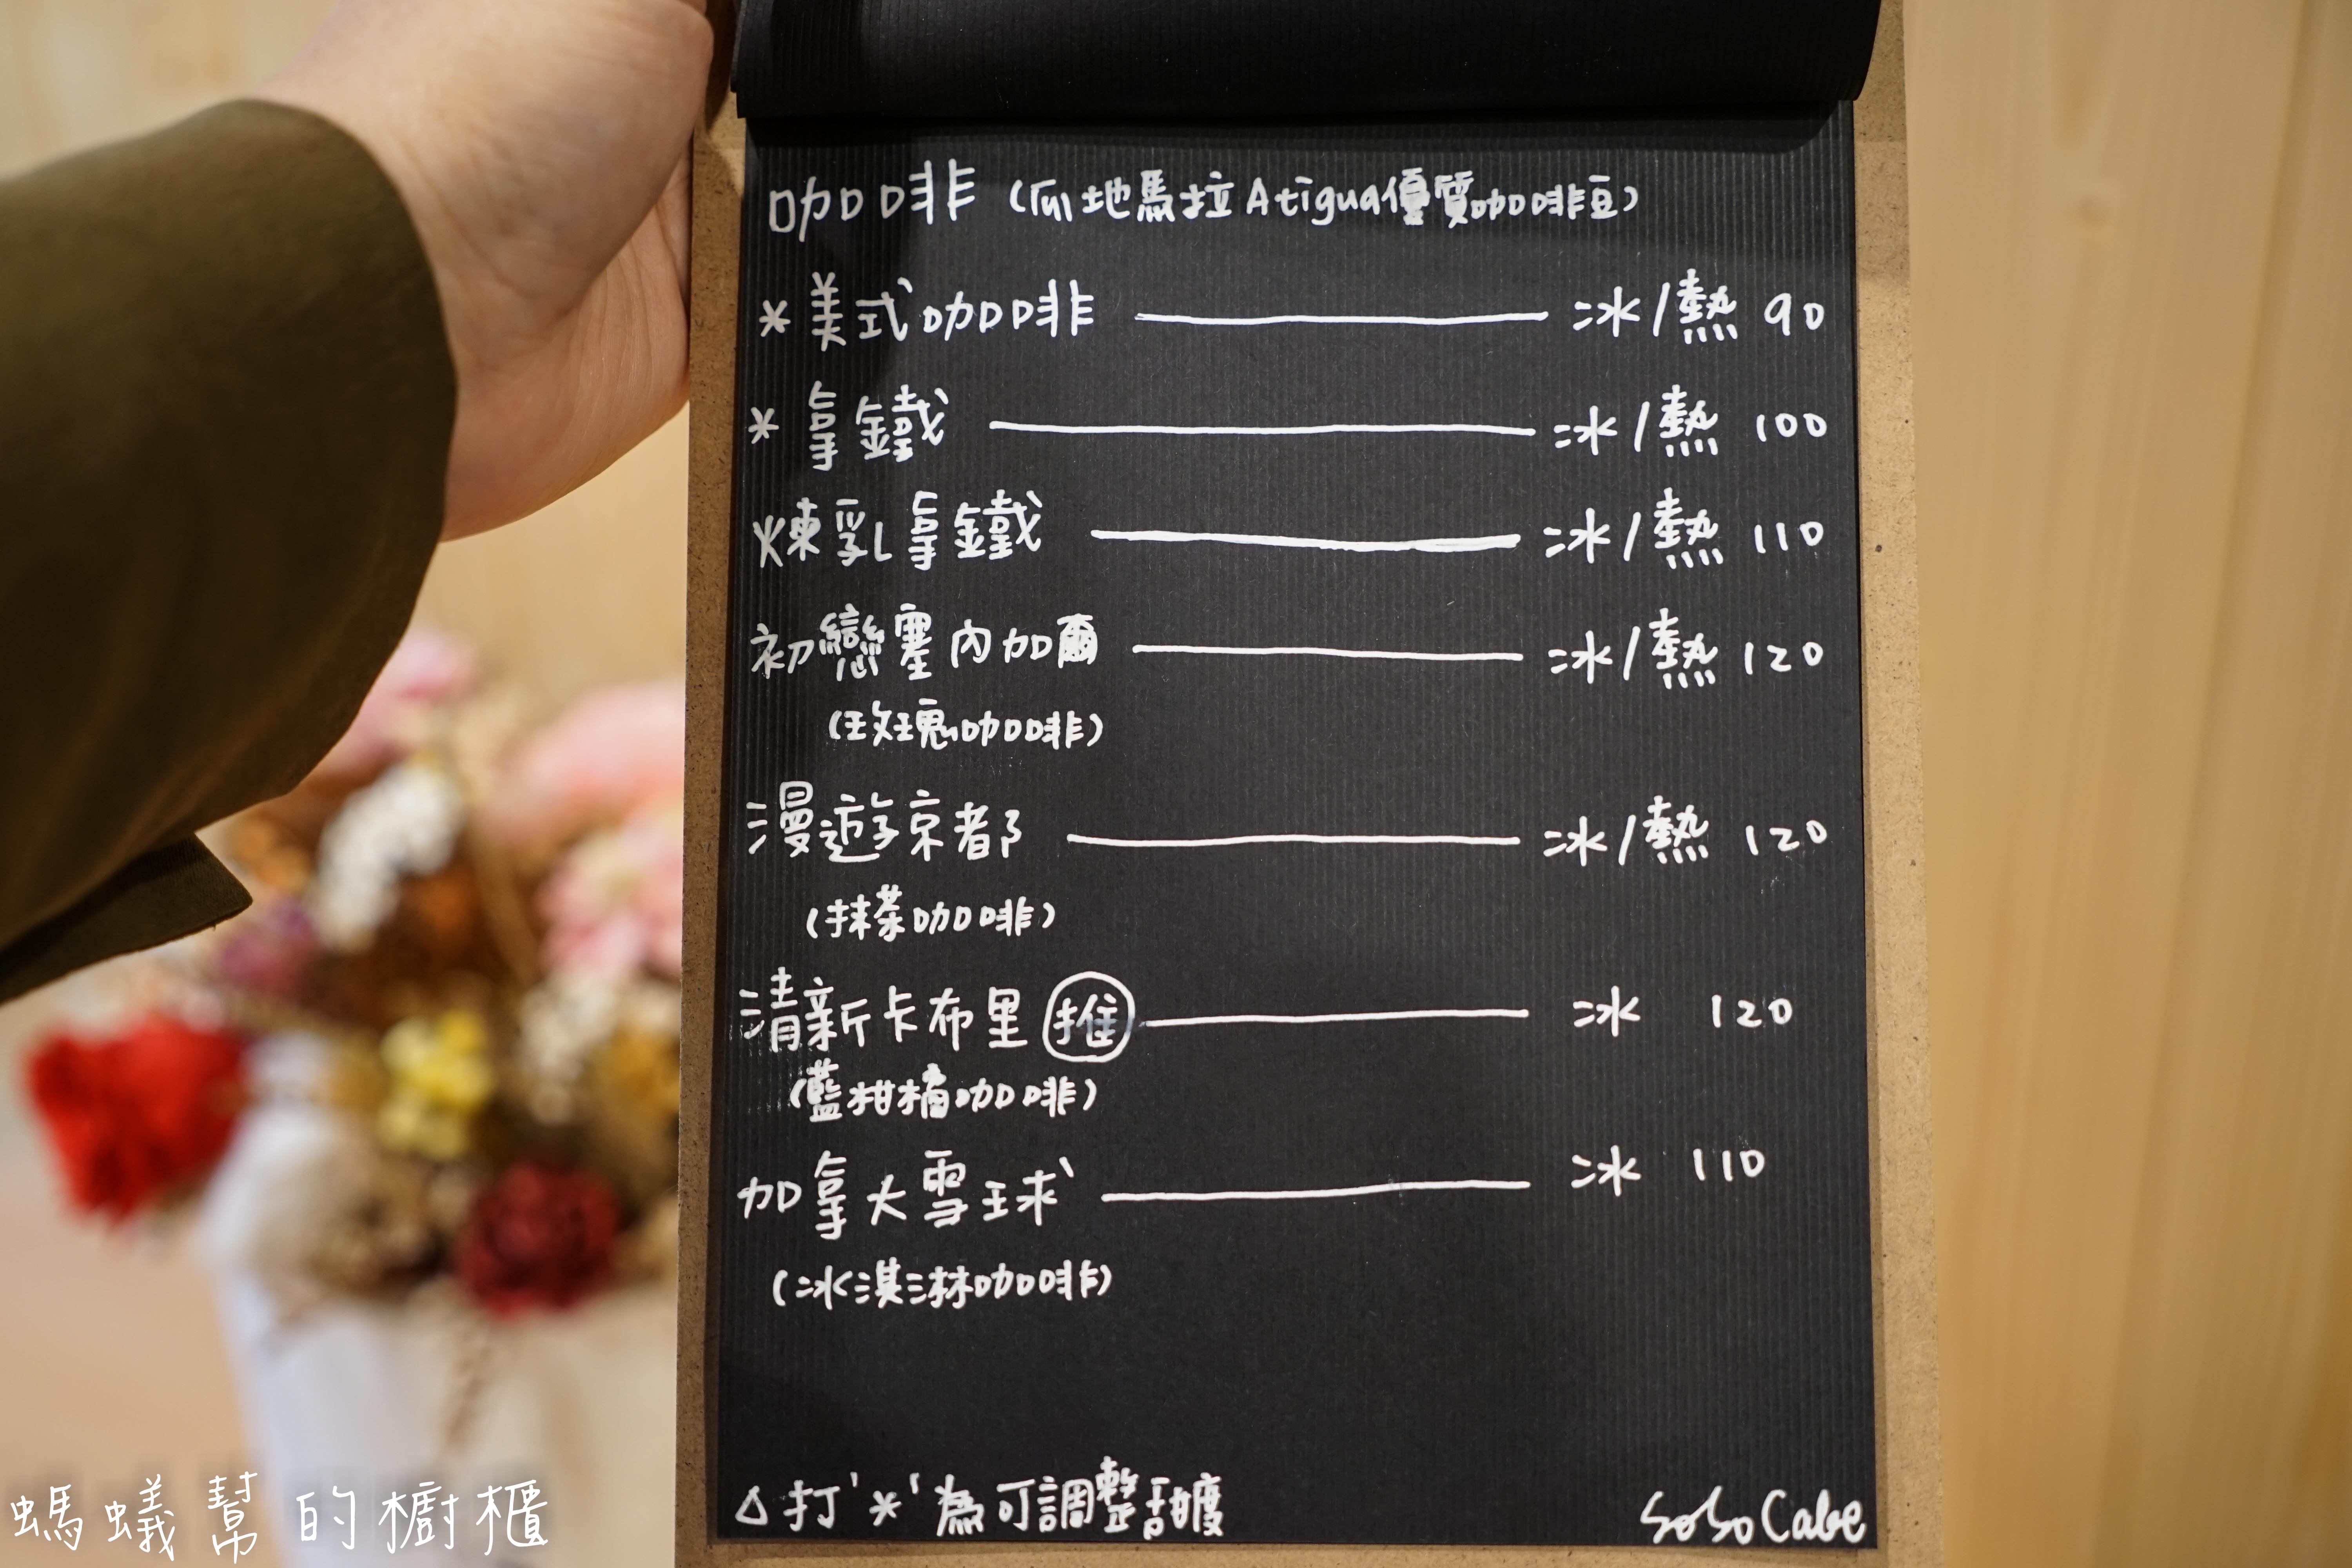 咖啡（瓜地馬拉Atigua優質咖啡豆）
*美式咖啡 冰/熱 90
*拿鐵 冰/熱 100
煉乳拿鐵 冰/熱 110
初戀塞內加爾 冰/熱 120
（玫瑰咖啡）
漫遊京都 冰/熱 120
（抹茶咖啡）
清新卡布里 推 冰 120
（藍柑橘咖啡）
加拿大雪球 冰 110
（冰淇淋咖啡）
△打'*'為可調整甜度
SoSo Cabe
螞蟻幫的櫥櫃